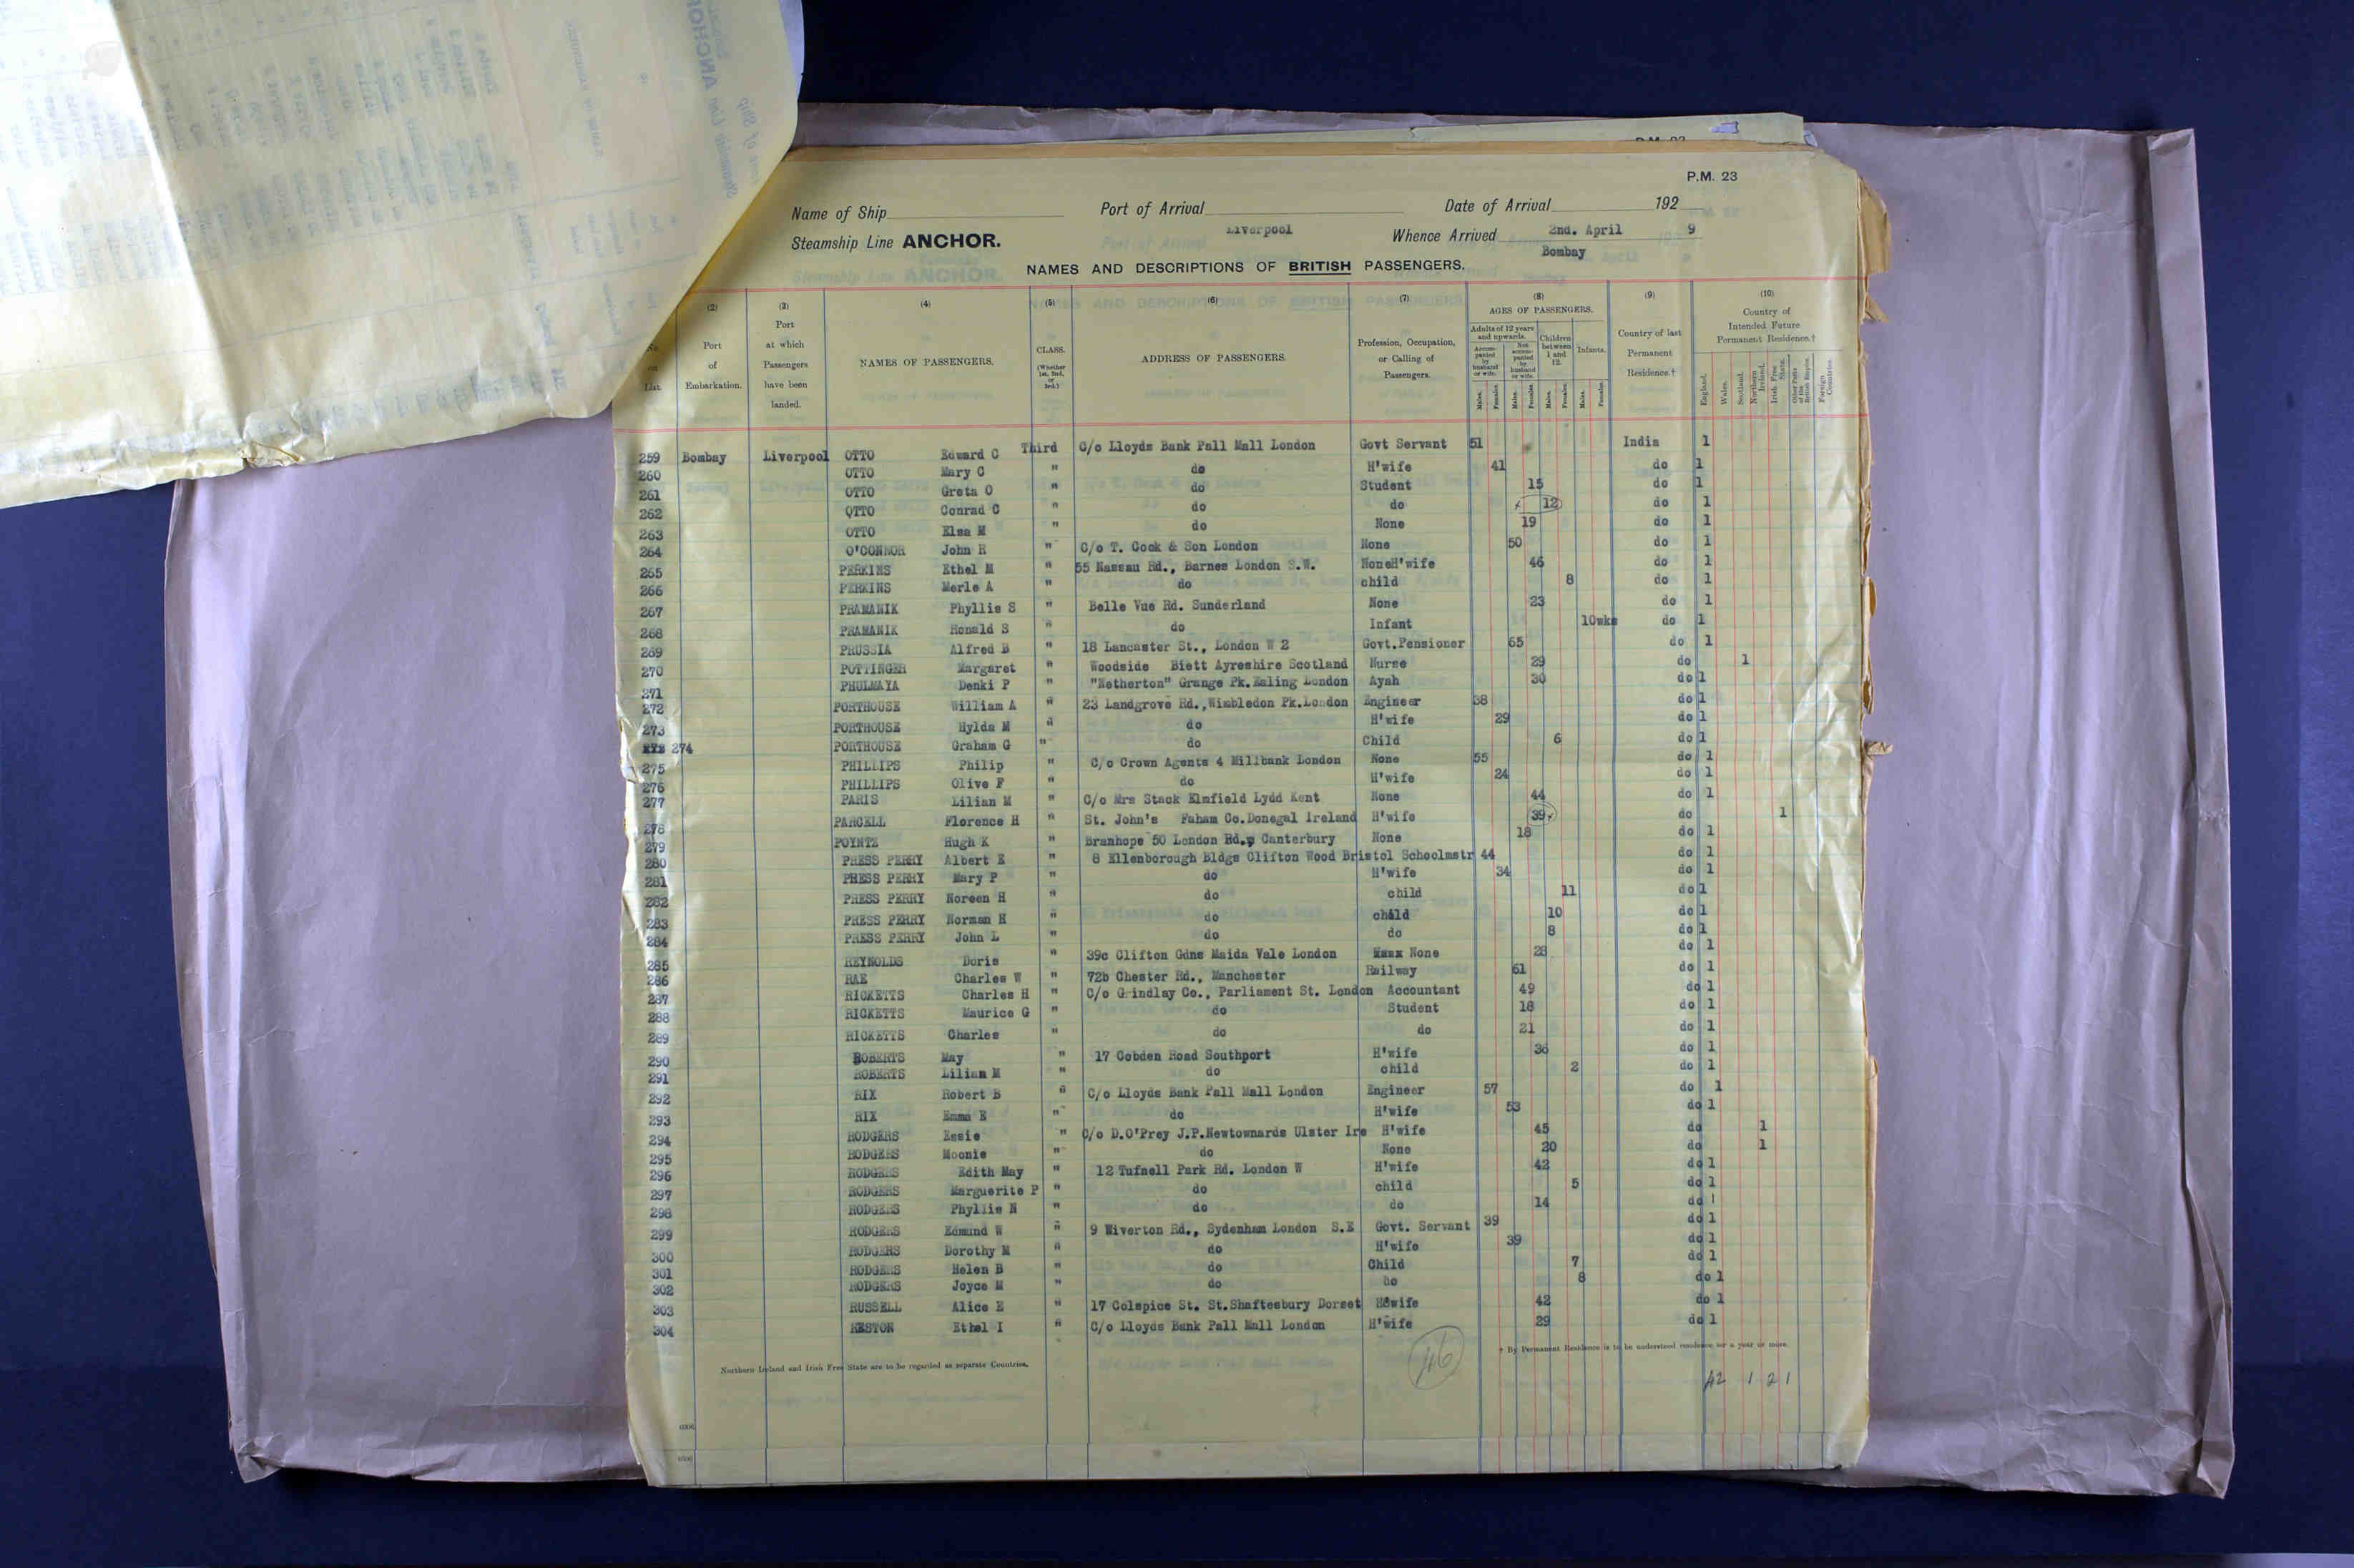 P.M. 23
Name of Ship Port of Arrival Date of Arrival 192
Liverpool 2nd. April 9
Steamship Line ANCHOR. Whence Arrived
Bombay
NAMES AND DESCRIPTIONS OF BRITISH PASSENGERS.
(2) (3) (4) (5) (6) (7) (8) (9) (10)
No. on List.
Port of Embarkation.
Port at which Passengers have been landed.
NAMES OF PASSENGERS.
CLASS. (Whether 1st, 2nd, or 3rd.)
ADDRESS OF PASSENGERS.
Profession, Occupation, or Calling of Passengers.
AGES OF PASSENGERS.
Adults of 12 years and upwards.
Accompanied by husband or wife.
Not accompanied by husband or wife.
Children between 1 and 12.
Infants.
Males. Females. Males. Females. Males. Females. Males. Females.
Country of last Permanent Residence.†
Country of Intended Future Permanent Residence.†
England. Wales. Scotland. Northern Ireland. Irish Free State. Other Parts of the British Empire. Foreign Countries.
259 Bombay Liverpool OTTO Edward C Third C/o Lloyds Bank Pall Mall London Govt Servant 51 India 1
260 OTTO Mary C " do H'wife 41 do 1
261 OTTO Greta O " do Student 15 do 1
262 OTTO Conrad C " do do 12 do 1
263 OTTO Elsa M " do None 19 do 1
264 O'CONNOR John R " C/o T. Cook & Son London None 50 do 1
265 PERKINS Ethel M " 55 Nassau Rd., Barnes London S.W. NoneH'wife 46 do 1
266 PERKINS Merle A " do child 8 do 1
267 PRAMANIK Phyllis S " Belle Vue Rd. Sunderland None 23 do 1
268 PRAMANIK Ronald S " do Infant 10wks do 1
269 PRUSSIA Alfred B " 18 Lancaster St., London W 2 Govt.Pensioner 65 do 1
270 POTTINGER Margaret " Woodside Biett Ayreshire Scotland Nurse 29 do 1
271 PHULMAYA Denki P " "Netherton" Grange Pk.Ealing London Ayah 30 do 1
272 PORTHOUSE William A " 23 Landgrove Rd.,Wimbledon Pk.London Engineer 38 do 1
273 PORTHOUSE Hylda M " do H'wife 29 do 1
274 PORTHOUSE Graham G " do Child 6 do 1
275 PHILLIPS Philip " C/o Crown Agents 4 Millbank London None 55 do 1
276 PHILLIPS Olive F " do H'wife 24 do 1
277 PARIS Lilian M " C/o Mrs Stack Elmfield Lydd Kent None 44 do 1
278 PARCELL Florence H " St. John's Faham Co.Donegal Ireland H'wife 39 do 1
279 POYNTZ Hugh K " Branhope 50 London Rd., Canterbury None 18 do 1
280 PRESS PERRY Albert E " 8 Ellenborough Bldgs Clifton Wood Bristol Schoolmstr 44 do 1
281 PRESS PERRY Mary P " do H'wife 34 do 1
282 PRESS PERRY Noreen H " do child 11 do 1
283 PRESS PERRY Norman H " do child 10 do 1
284 PRESS PERRY John L " do do 8 do 1
285 REYNOLDS Doris " 39c Clifton Gdns Maida Vale London None 28 do 1
286 RAE Charles W " 72b Chester Rd., Manchester Railway 61 do 1
287 RICKETTS Charles H " C/o Grindlay Co., Parliament St. London Accountant 49 do 1
288 RICKETTS Maurice G " do Student 18 do 1
289 RICKETTS Charles " do do 21 do 1
290 ROBERTS May " 17 Cobden Road Southport H'wife 36 do 1
291 ROBERTS Lilian M " do child 2 do 1
292 RIX Robert B " C/o Lloyds Bank Pall Mall London Engineer 57 do 1
293 RIX Emma E " do H'wife 53 do 1
294 RODGERS Essie " C/o D.O'Prey J.P.Newtownards Ulster Ire H'wife 45 do 1
295 RODGERS Moonie " do None 20 do 1
296 RODGERS Edith May " 12 Tufnell Park Rd. London W H'wife 42 do 1
297 RODGERS Marguerite P " do child 5 do 1
298 RODGERS Phyllis N " do do 14 do 1
299 RODGERS Edmund W " 9 Wiverton Rd., Sydenham London S.E Govt. Servant 39 do 1
300 RODGERS Dorothy M " do H'wife 39 do 1
301 RODGERS Helen B " do Child 7 do 1
302 RODGERS Joyce M " do do 8 do 1
303 RUSSELL Alice E " 17 Colspice St. St.Shaftesbury Dorset H'wife 42 do 1
304 RESTON Ethel I " C/o Lloyds Bank Pall Mall London H'wife 29 do 1
† By Permanent Residence is to be understood residence for a year or more.
Northern Ireland and Irish Free State are to be regarded as separate Countries.
46
42 1 2 1